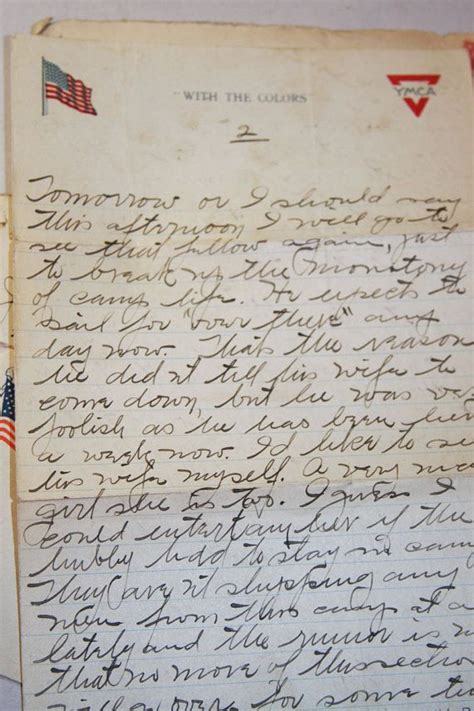 "WITH THE COLORS
YMCA
2
Tomorrow or I should say
this afternoon I will go to
see that fellow again, just
to break up the monotony
of camp life. He expects to
sail for "over there" any
day now. That's the reason
he didn't tell his wife to
come down, but he was very
foolish as he has been here
a week now. I'd like to see
his wife myself. A very nice
girl she is too. I guess I
could entertain her if the
hubby had to stay in camp
They aren't shipping any
men from this camp at a
lately and the rumor is
that no more of this section
will go over for some